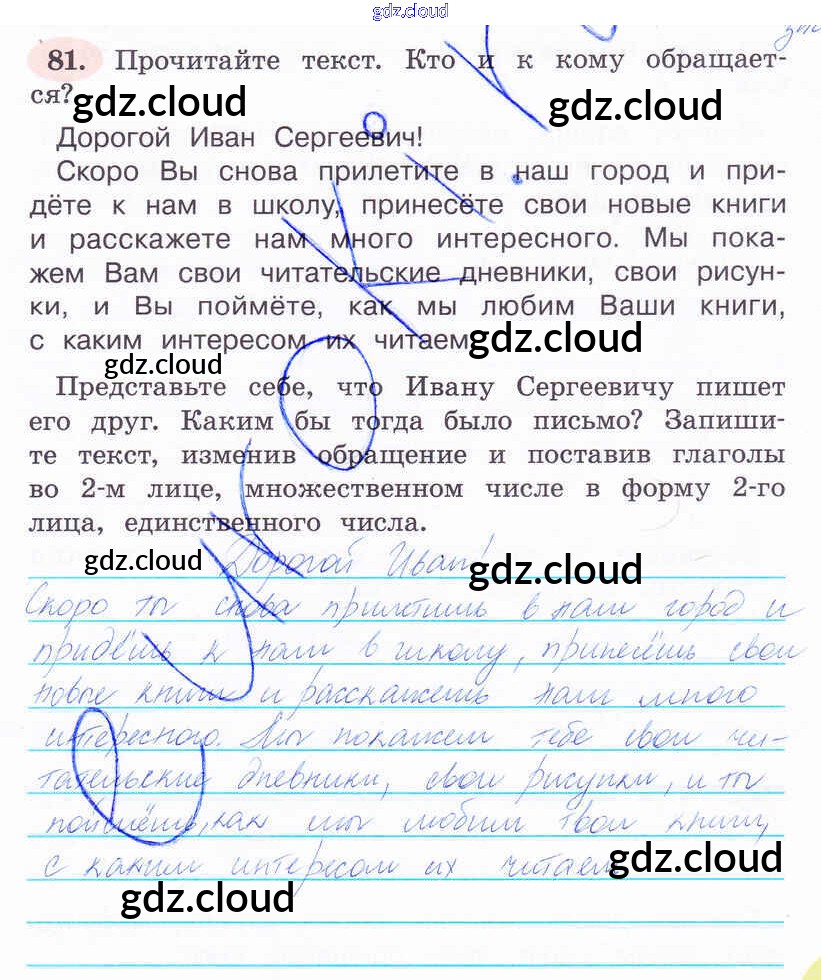 gdz.cloud
81. Прочитайте текст. Кто и к кому обращает-
ся?
gdz.cloud
gdz.cloud
Дорогой Иван Сергеевич!
Скоро Вы снова прилетите в наш город и при-
дёте к нам в школу, принесёте свои новые книги
и расскажете нам много интересного. Мы пока-
жем Вам свои читательские дневники, свои рисун-
ки, и Вы поймёте, как мы любим Ваши книги,
с каким интересом их читаем
gdz.cloud
gdz.cloud
Представьте себе, что Ивану Сергеевичу пишет
его друг. Каким бы тогда было письмо? Запиши-
те текст, изменив обращение и поставив глаголы
во 2-м лице, множественном числе в форму 2-го
лица, единственного числа.
gdz.cloud
Дорогой Иван!
gdz.cloud
Скоро ты снова прилетишь в наш город и
придёшь к нам в школу, принесёшь свои
новые книги и расскажешь нам много
интересного. Мы покажем тебе свои чи-
тательские дневники, свои рисунки, и ты
поймёшь, как мы любим твои книги,
с каким интересом их читаем
gdz.cloud
gdz.cloud